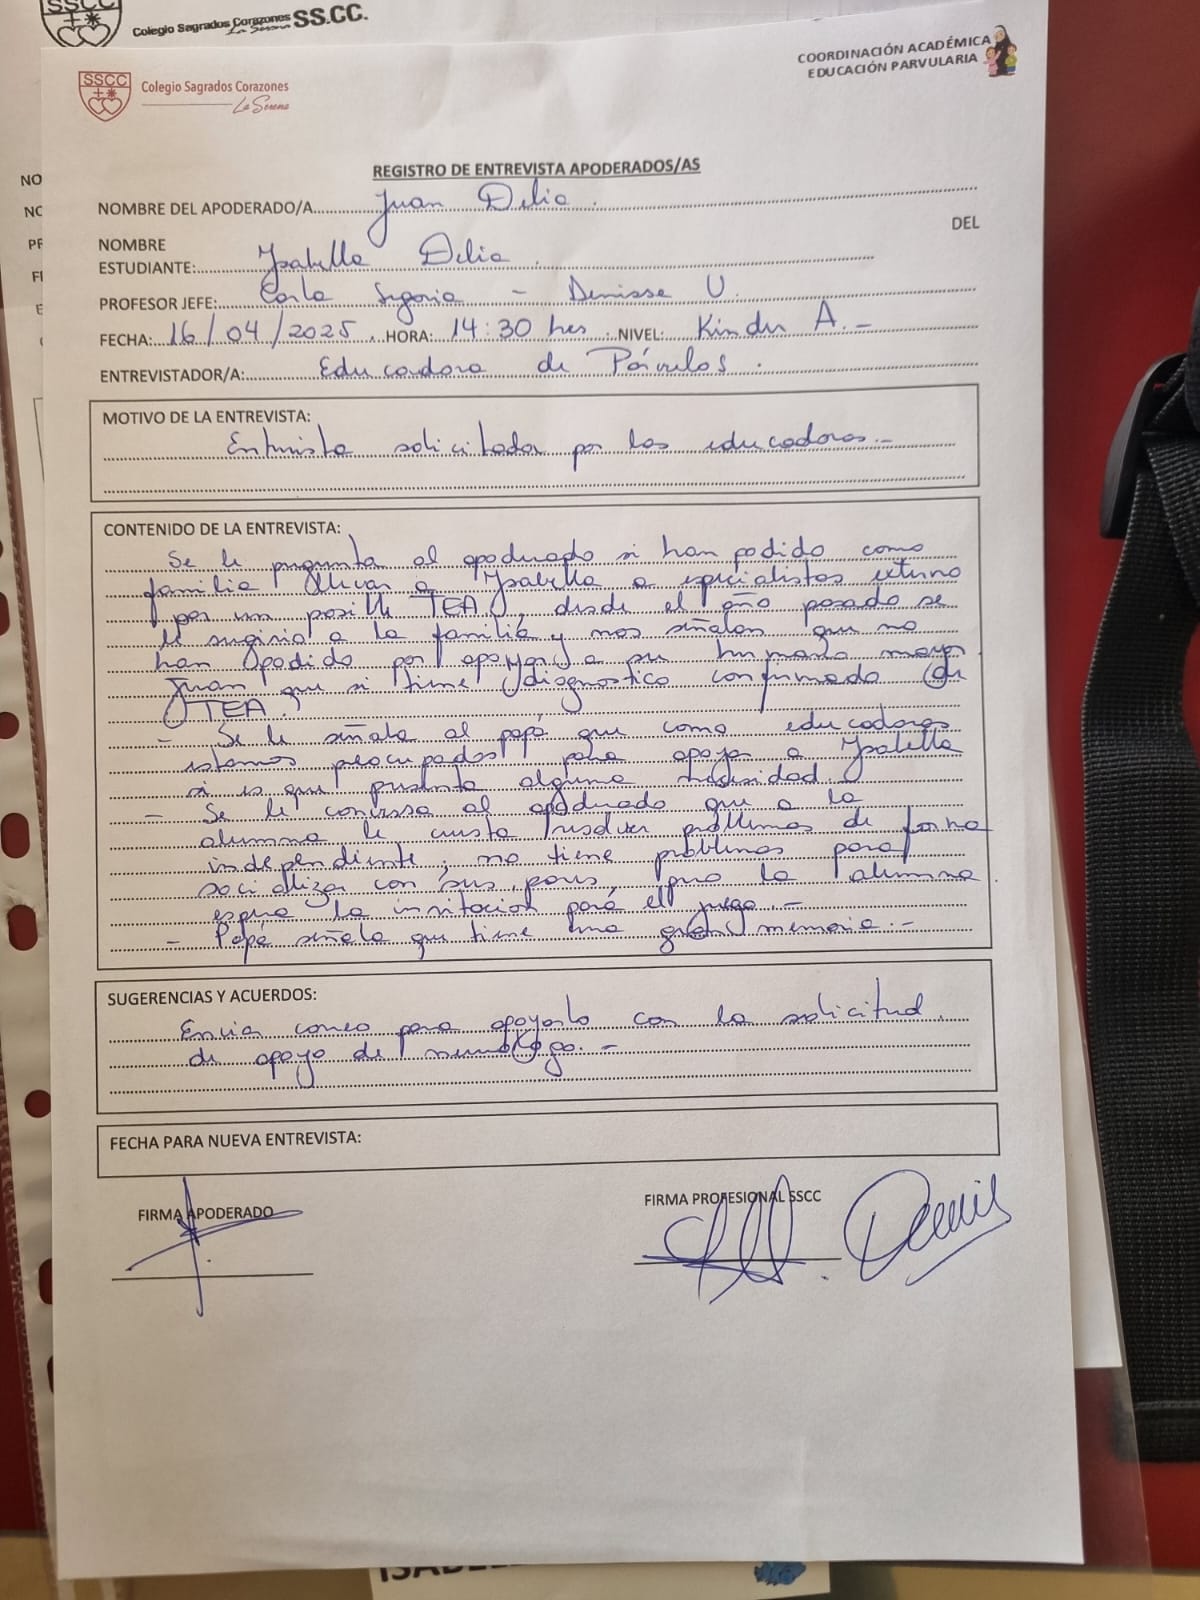 SSCC
Colegio Sagrados Corazones SS.CC.
La Serena
SSCC
Colegio Sagrados Corazones
La Serena
COORDINACIÓN ACADÉMICA
EDUCACIÓN PARVULARIA
REGISTRO DE ENTREVISTA APODERADOS/AS
NOMBRE DEL APODERADO/A Juan Delia.
NOMBRE DEL
ESTUDIANTE: Ysabella Delia.
PROFESOR JEFE: Carla Segovia - Denisse U.
FECHA: 16/04/2025. HORA: 14:30 hrs. NIVEL: Kinder A.-
ENTREVISTADOR/A: Educadora de Párvulos.
MOTIVO DE LA ENTREVISTA:
Entrevista solicitada por las educadoras.-
CONTENIDO DE LA ENTREVISTA:
Se le pregunta al apoderado si han podido como
familia llevar a Ysabella a especialistas externo
por un posible TEA, desde el año pasado se
le sugirió a la familia y nos señalan que no
han podido por apoyar a su hermano mayor
Juan que si tiene diagnostico confirmado de
TEA.
- Se le señala al papá que como educadoras
estamos preocupados para apoyar a Ysabella
si es que presenta alguna necesidad.
- Se le conversa al apoderado que a la
alumna le cuesta resolver problemas de forma
independiente, no tiene problemas para
socializar con sus pares, pero la alumna
espera la invitación para el juego.-
- Papá señala que tiene una gran memoria.-
SUGERENCIAS Y ACUERDOS:
Enviar correo para apoyarlo con la solicitud
de apoyo de neurólogo.-
FECHA PARA NUEVA ENTREVISTA:
FIRMA APODERADO
FIRMA PROFESIONAL SSCC
Denis